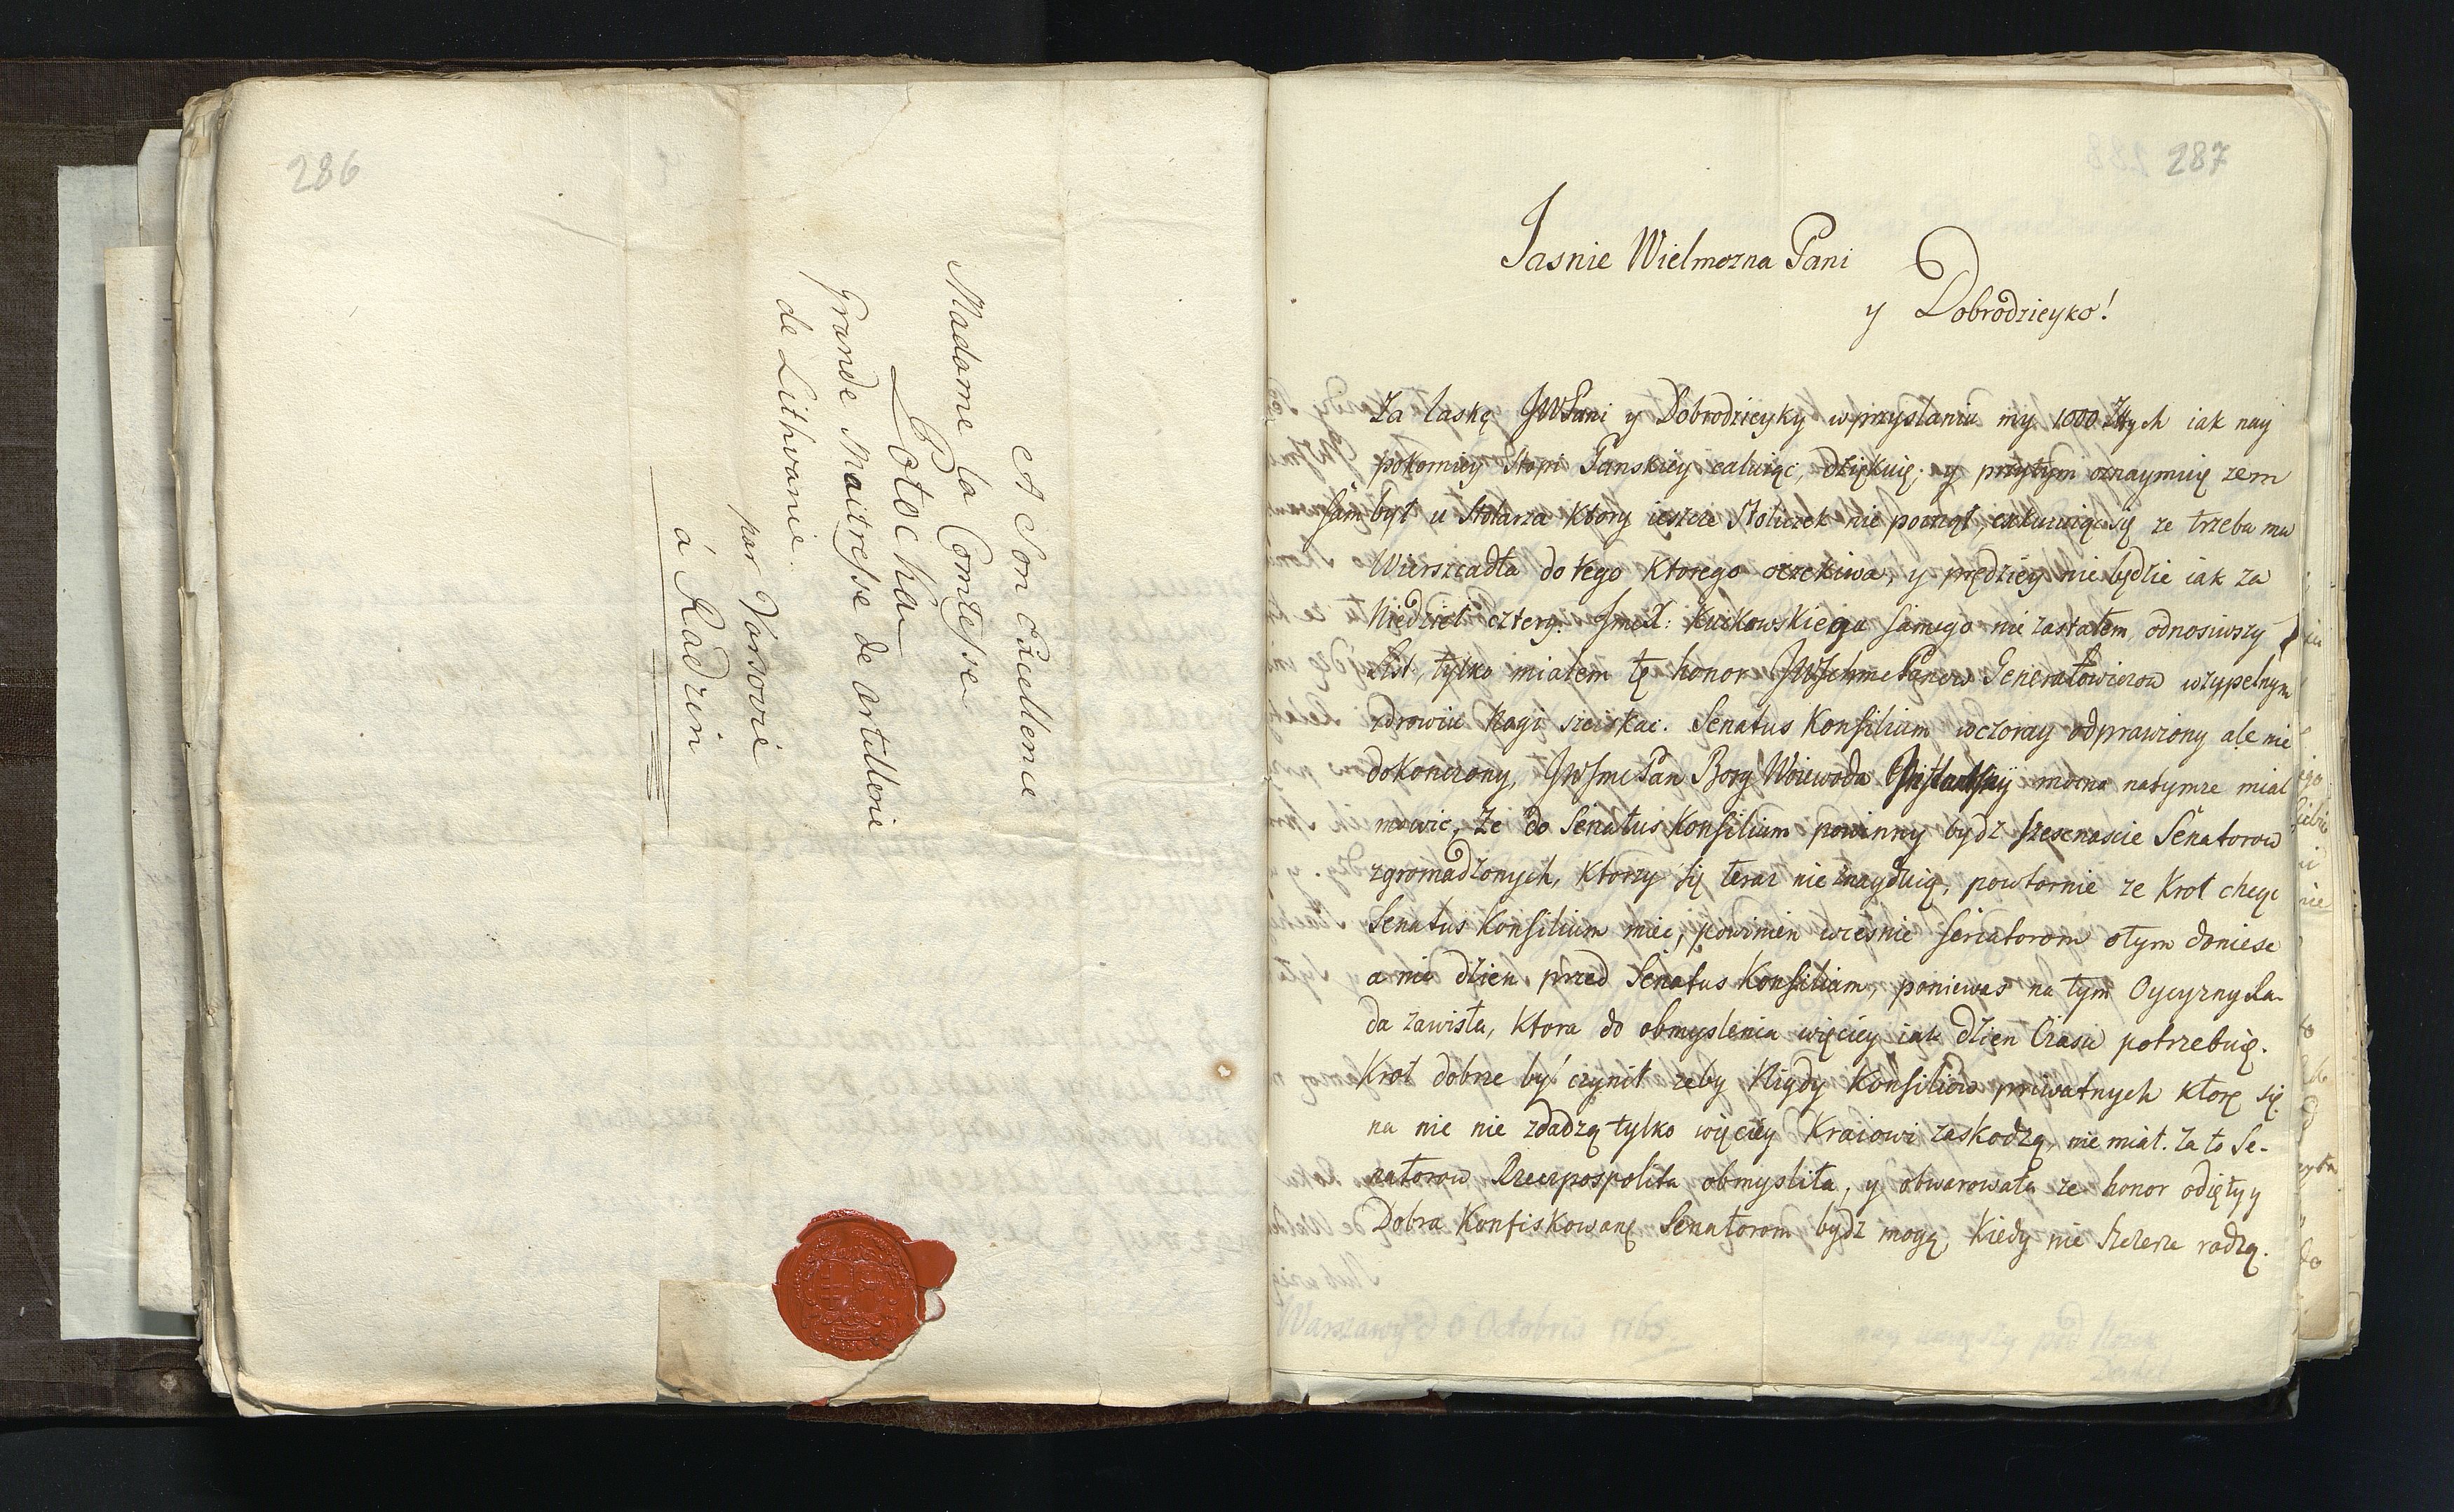 286
A Son Excellence
Madame la Comtesse
Potocka
Grande Maitresse de Artillerie
de Lithvanie.
par Varsovie
á Radzin
287
Jasnie Wielmozna Pani
y Dobrodzieyko!
Za laskę JWPani y Dobrodzieyky w przyslaniu my 1000 Złłych iak nay
pokorniey Stopi Panskiey caluięc, dziękuię; y przytym oznaymuię zem
sam był u Stolarza ktory ieszcze Stoliczek nie począł, exkuuiącsię ze trzeba mu
Wierszcadła do tego ktorego oczekiwa, y prędziey nie będzie iak za
Niedziel cztery. Jmci X: samego nie zastałem, odnosiwszy
List, tylko miałem tę honor Generałowiczow w zypelnym
zdrowiu Nagi scziskac. Senatus Konsilium wczoray odprawiony ale nie
dokonczony, JWJmc Pan Borg Woiewoda mocno natymze mial
mowic, Ze do Senatus Konsilium powinny bydz szesenascie Senatorow
zgromadzonych, ktorzy się teraz nie znayduią, powtornie ze Krol chcąc
Senatus Konsilium miec, powinien wczesnie senatorom otym doniesc
a nie dzien przed Senatus Konsilium, poniewas na tym Oycyzny Ra-
da zawisła, ktora do obmyslenia więciey iak dzien Czasu potrzebuię.
Krol dobrze by czynił zeby Nigdy Konsiliow priwatnych ktorę się
na nic nie zdadzą tylko więciey Kraiowi zaskodzą, nie miał. Za to Se-
natorow Rzeczpospolita obmysliła, y obwarowała ze honor odięty y
Dobra Konfiskowanę Senatorom bydz mogą, Kiedy nie Szczerze radzą.